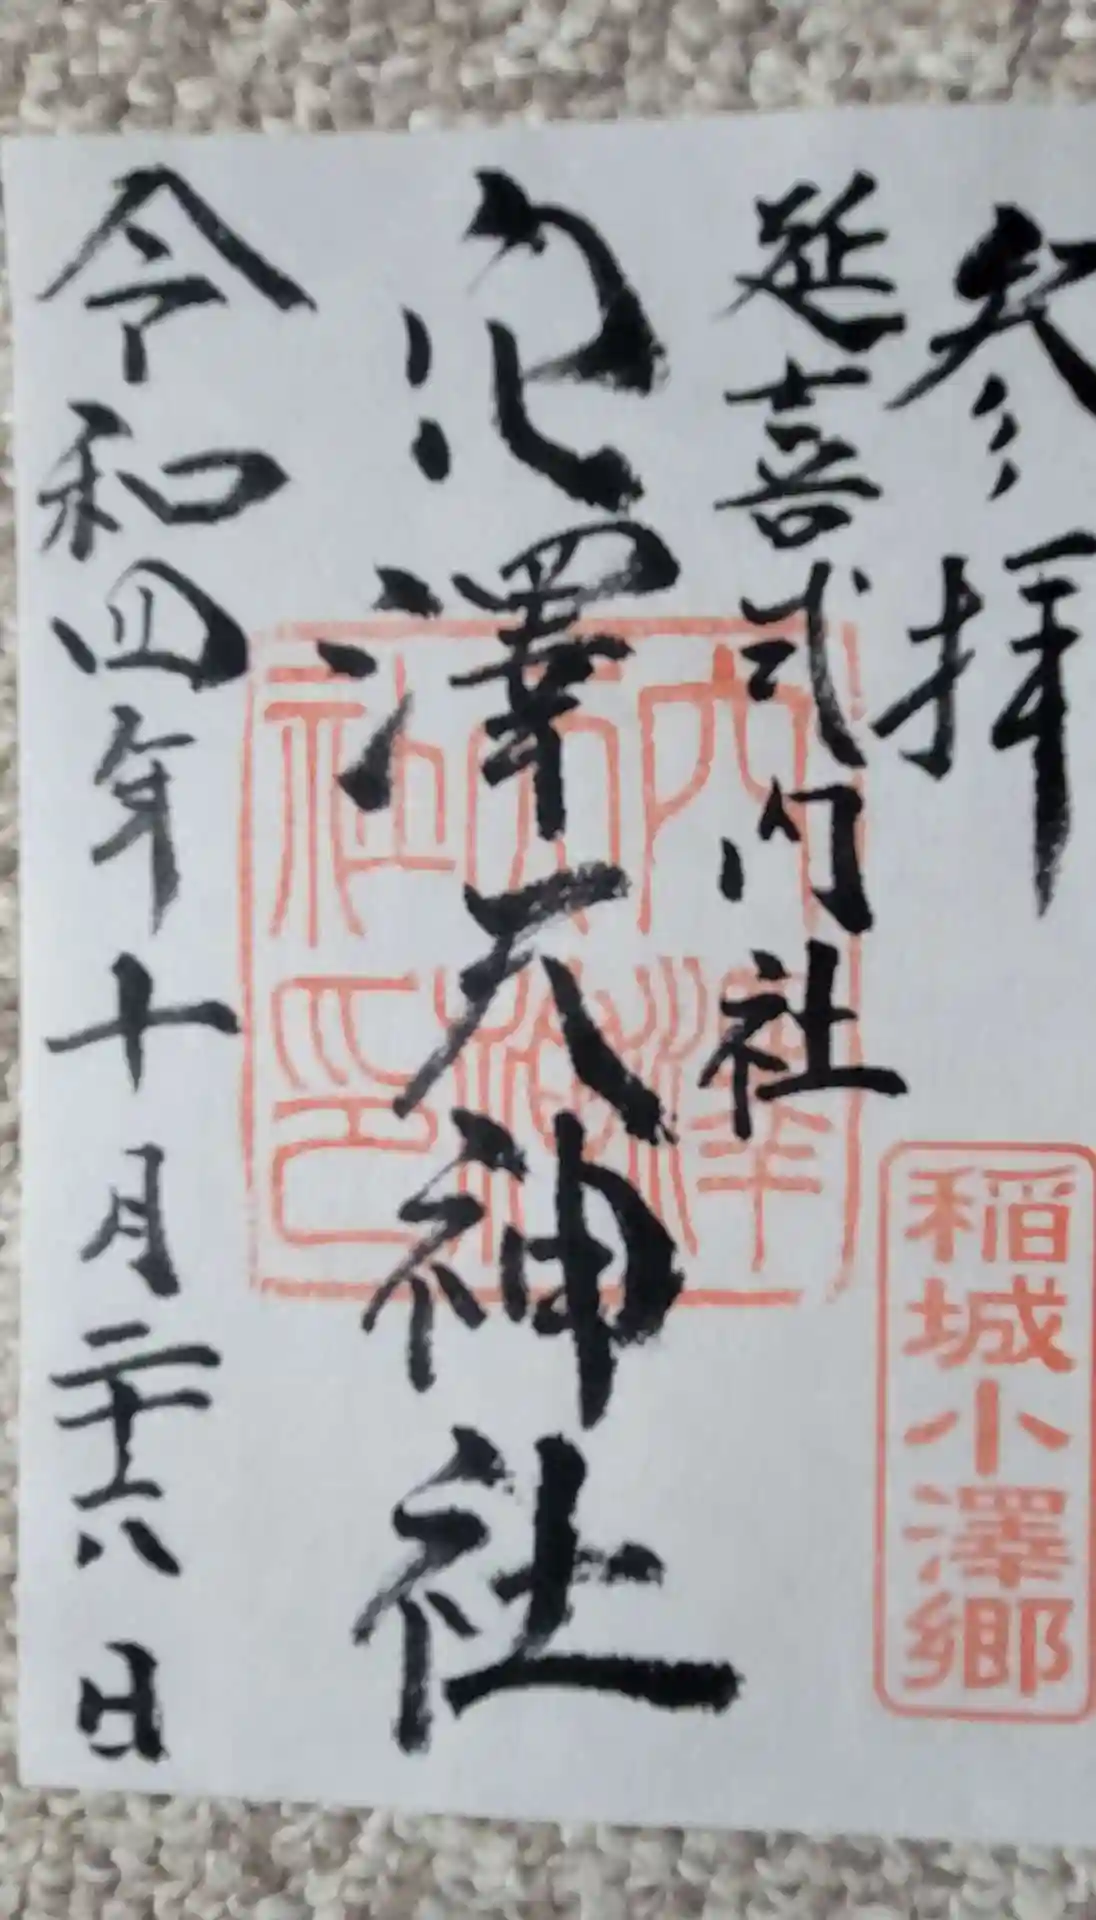 参拝
延喜式内社
穴澤天神社
令和四年十月二十六日
稲城小澤郷
穴澤
天神
社印